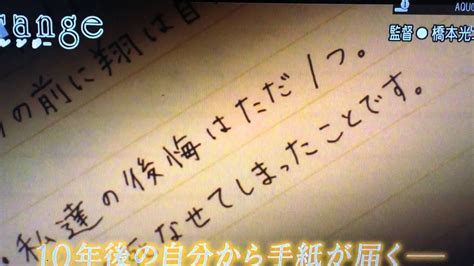 ange
AQUO
監督●橋本光
の前に翔は自
私達の後悔はただ1つ。
なせてしまったことです。
10年後の自分から手紙が届く──